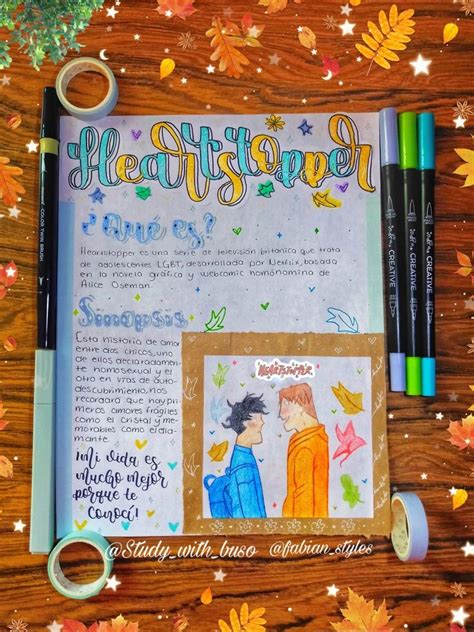 @Study_with_buso @fabian_styles
Heartstopper
¿Qué es?
Heartstopper es una serie de televisión britanica que trata
de adolescentes LGBT, desarrollada por Netflix, basada
en la novela gráfica y webcomic homónomina de
Alice Oseman.
Sinopsis
Esta historia de amor
entre dos chicos, uno de
ellos declaradamente
homosexual y el
otro en vras de auto-
descubrimiento, nos
recordará que hay pri-
meros amores frágiles
como el cristal y me-
morables como el dia-
mante.
¡Mi vida es
mucho mejor
porque te
conocí!
HEARTSTOPPER
CREATIVE
CREATIVE
CREATIVE
@Study_with_buso @fabian_styles